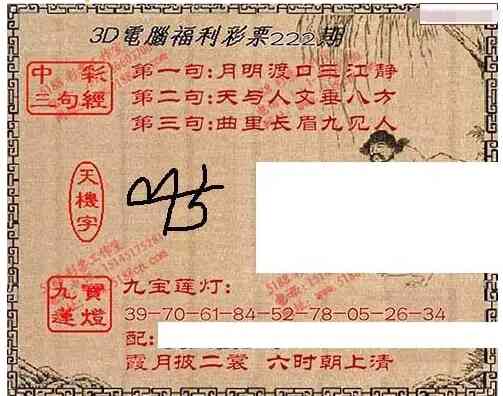 3D電腦福利彩票222期
中彩
三句經
第一句:月明渡口三江静
第二句:天与人文垂八方
第三句:曲里长眉九见人
天機字
九寶
蓮燈
九宝莲灯:
39-70-61-84-52-78-05-26-34
配:
霞月披二裳 六时朝上清